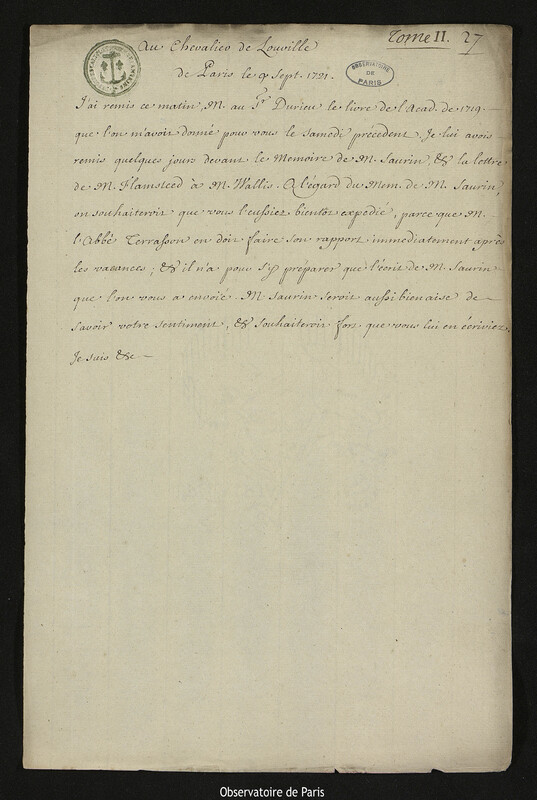 Tome II. 27
Au Chevalier de Louville
OBSERVATOIRE
DE
PARIS
de Paris le 9 Sept. 1721.
J'ai remis ce matin, M. au Sr. Durieu le livre de l'Acad. de 1719.
que l'on m'avoit donné pour vous le samedi précédent. Je lui avois
remis quelques jours devant le Memoire de M. Saurin, & la lettre
de M. Flamsteed à M. Wallis. A l'égard du Mem. de M. Saurin,
on souhaiteroit que vous l'eussiez bientot expedié, parce que M.
l'Abbé Terrasson en doit faire son rapport immediatement après
les vacances; & il n'a pour s'y préparer que l'écrit de M. Saurin
que l'on vous a envoié. M. Saurin seroit aussi bien aise de
savoir votre sentiment, & souhaiteroit fort que vous lui en écriviez.
Je suis &c
Observatoire de Paris